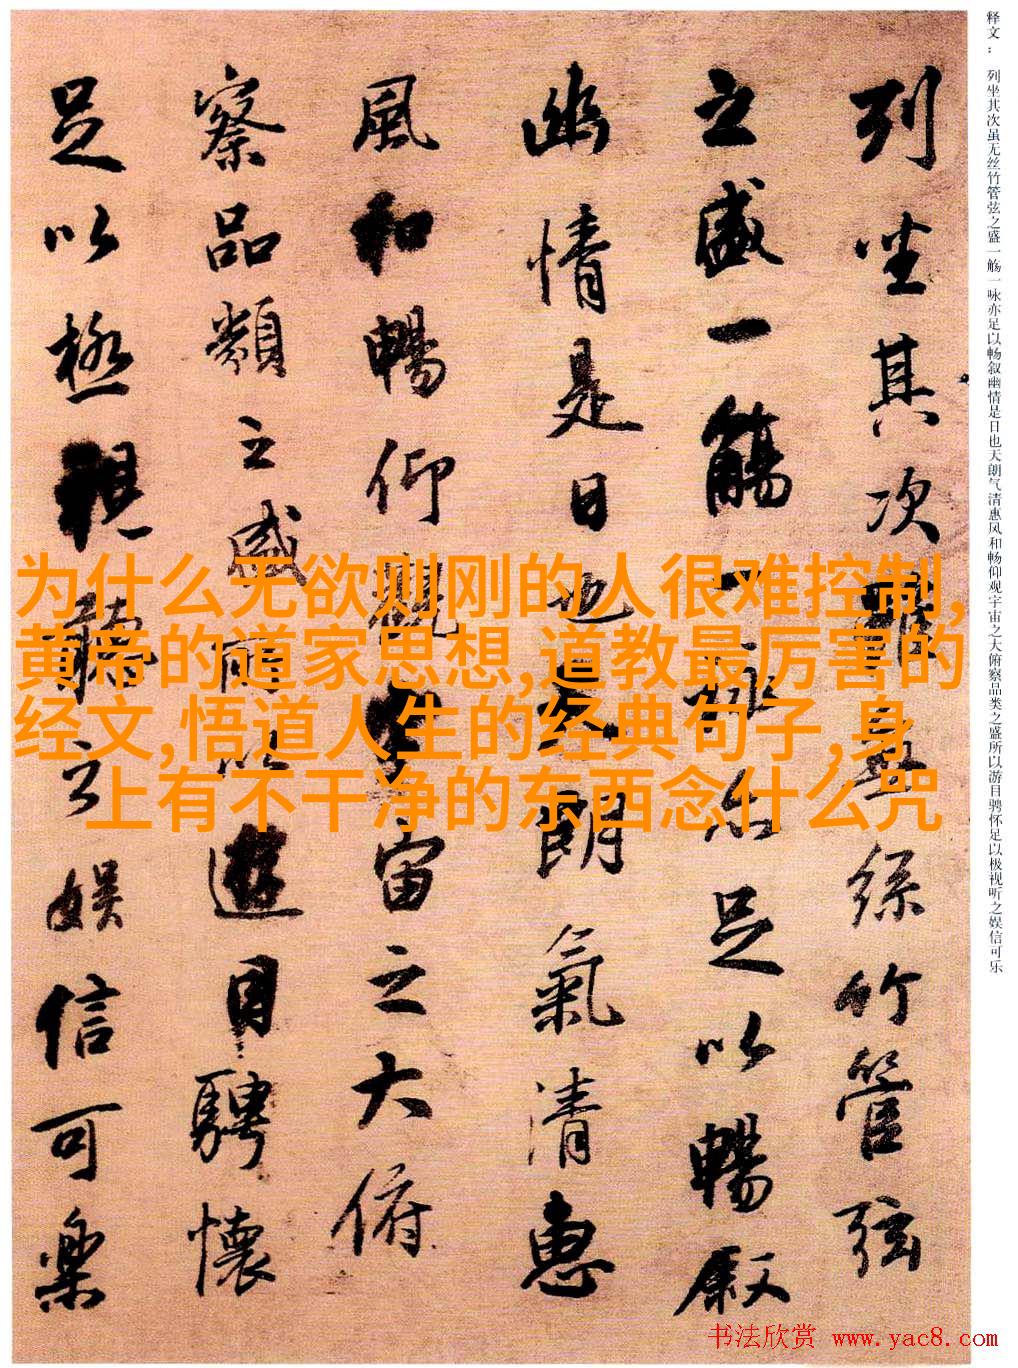 释文： 列坐其次虽无丝竹管弦之盛一觞一咏亦足以畅叙幽情是日也天朗气清惠风和畅仰观宇宙之大俯察品类之盛所以游目骋怀足以极视听之娱信可乐
列坐其次雖無絲竹管弦
之盛一觴一詠亦足以暢叙
幽情是日也天朗氣清惠
風和暢仰觀宇宙之大俯
察品類之盛所以遊目騁懷
足以極視聽之娛信可樂
为什么无欲则刚的人很难控制,
黄帝的道家思想,道教最厉害的
经文,悟道人生的经典句子,身
上有不干净的东西念什么咒
书法欣赏 www.yac8.com